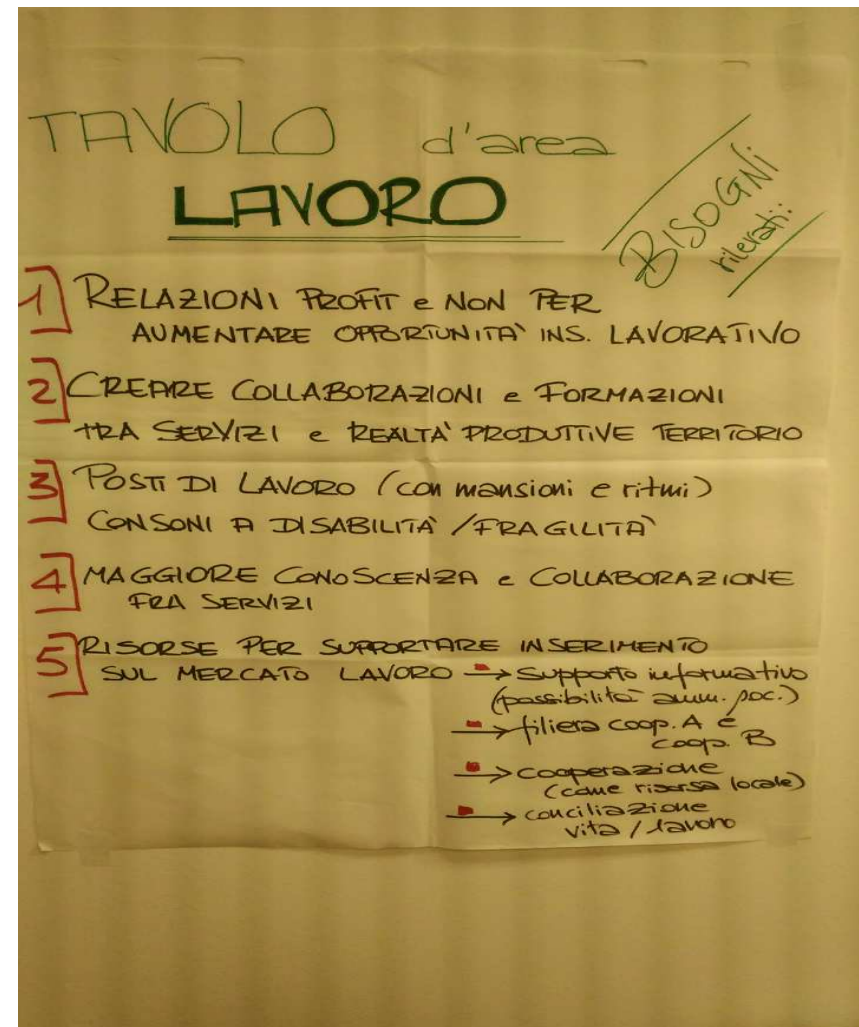 TAVOLO d'area
LAVORO
BISOGNI
rilevati:
1 RELAZIONI PROFIT e NON PER
AUMENTARE OPPORTUNITA' INS. LAVORATIVO
2 CREARE COLLABORAZIONI e FORMAZIONI
TRA SERVIZI e REALTA' PRODUTTIVE TERRITORIO
3 POSTI DI LAVORO (con mansioni e ritmi)
CONSONI A DISABILITA' / FRAGILITA'
4 MAGGIORE CONOSCENZA e COLLABORAZIONE
FRA SERVIZI
5 RISORSE PER SUPPORTARE INSERIMENTO
SUL MERCATO LAVORO → Supporto informativo
(possibilità amm. soc.)
→ filiera coop. A e
coop. B
→ cooperazione
(come risorsa locale)
→ conciliazione
vita / lavoro